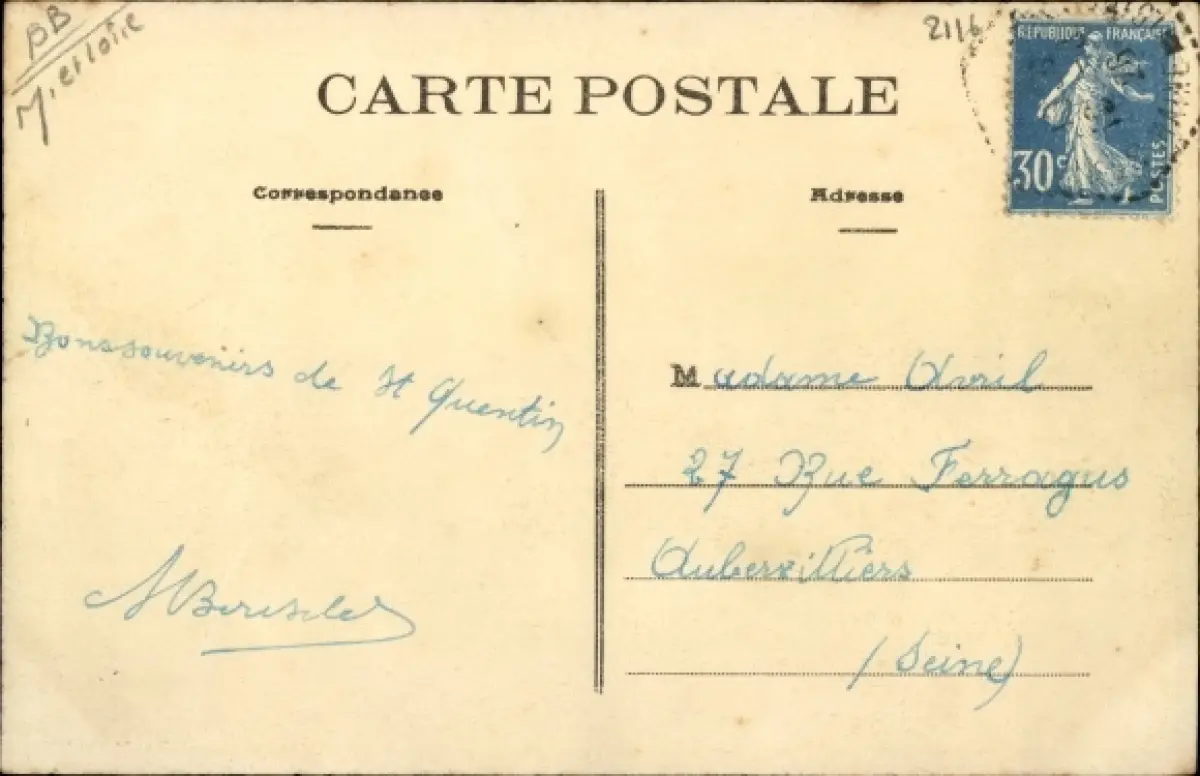 BB
M. et Loire
2116
RÉPUBLIQUE FRANÇAISE
30c
POSTES
CARTE POSTALE
Correspondance
Adresse
Bons souvenirs de St Quentin
Madame Avril
27 Rue Ferragus
Aubervilliers
(Seine)